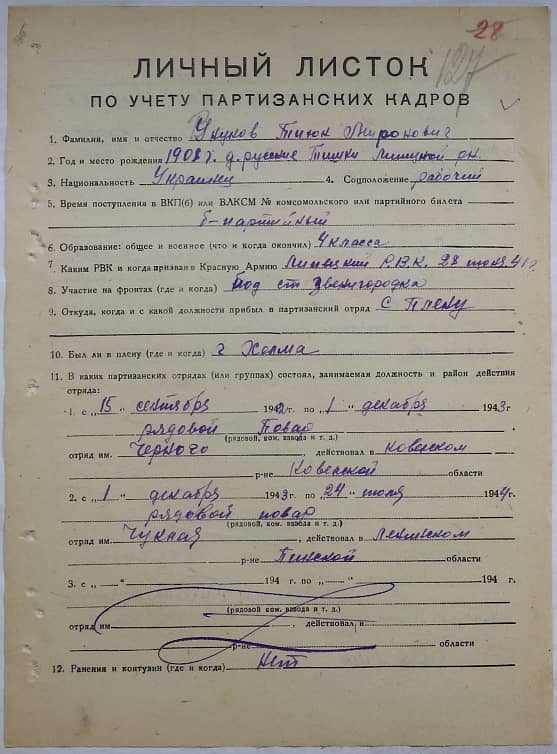 28
127
ЛИЧНЫЙ ЛИСТОК
ПО УЧЕТУ ПАРТИЗАНСКИХ КАДРОВ
1. Фамилия, имя и отчество Укуков Миронович
2. Год и место рождения 1908 г. д. русские Тишки рн.
3. Национальность Украинец 4. Соцположение рабочий
5. Время поступления в ВКП(б) или ВЛКСМ № комсомольского или партийного билета
б-партийный
6. Образование: общее и военное (что и когда окончил) 4 класса
7. Каким РВК и когда призван в Красную Армию Р.В.К. 28 июня 41 г.
8. Участие на фронтах (где и когда) под ст Звенигородка
9. Откуда, когда и с какой должности прибыл в партизанский отряд с плену
10. Был ли в плену (где и когда) г Холма
11. В каких партизанских отрядах (или группах) состоял, занимаемая должность и район действия
отряда:
1. с „15" сентября 1942г по „1" декабря 1943г
рядовой повар
(рядовой, ком. взвода и т. д.)
отряд им. Черного, действовал в Ковенском
р-не Ковенской области
2. с „1" декабря 1943г по „24" июля 1944г.
рядовой повар
(рядовой, ком. взвода и т. д.)
отряд им. Чукная, действовал в Ленинском
р-не Пинской области
3. с „ " 194 г. по „ " 194 г.
(рядовой ком. взвода и т. д.)
отряд им , действовал в
р-не области
12. Ранения и контузии (где и когда) Нет